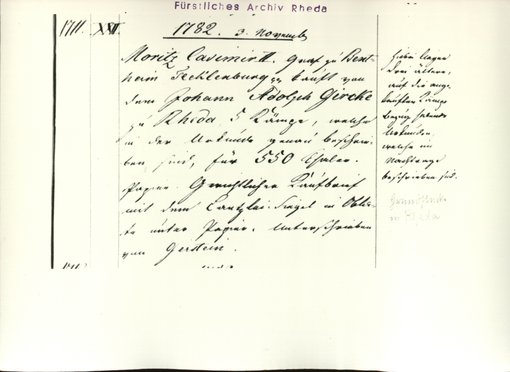 Fürstliches Archiv Rheda
1711. XVI.
1782. 3. November
Moritz Casimir II. Graf zu Bent-
heim Tecklenburg pp kauft von
dem Johann Adolph Giercke
zu Rheda 5 Kämpe, welche
in der Urkunde genau beschrie-
ben sind, für 550 Thaler.
Papier. Gerichtlicher Kaufbrief
mit dem Canzlei-Siegel in Obla-
te unter Papier. Unterschrieben
von Gerstein.
Hiebei liegen
drei ältere,
auf die ange-
kauften Kämpe
Bezug habende
Urkunden,
welche im
Nachtrage
beschrieben sind.